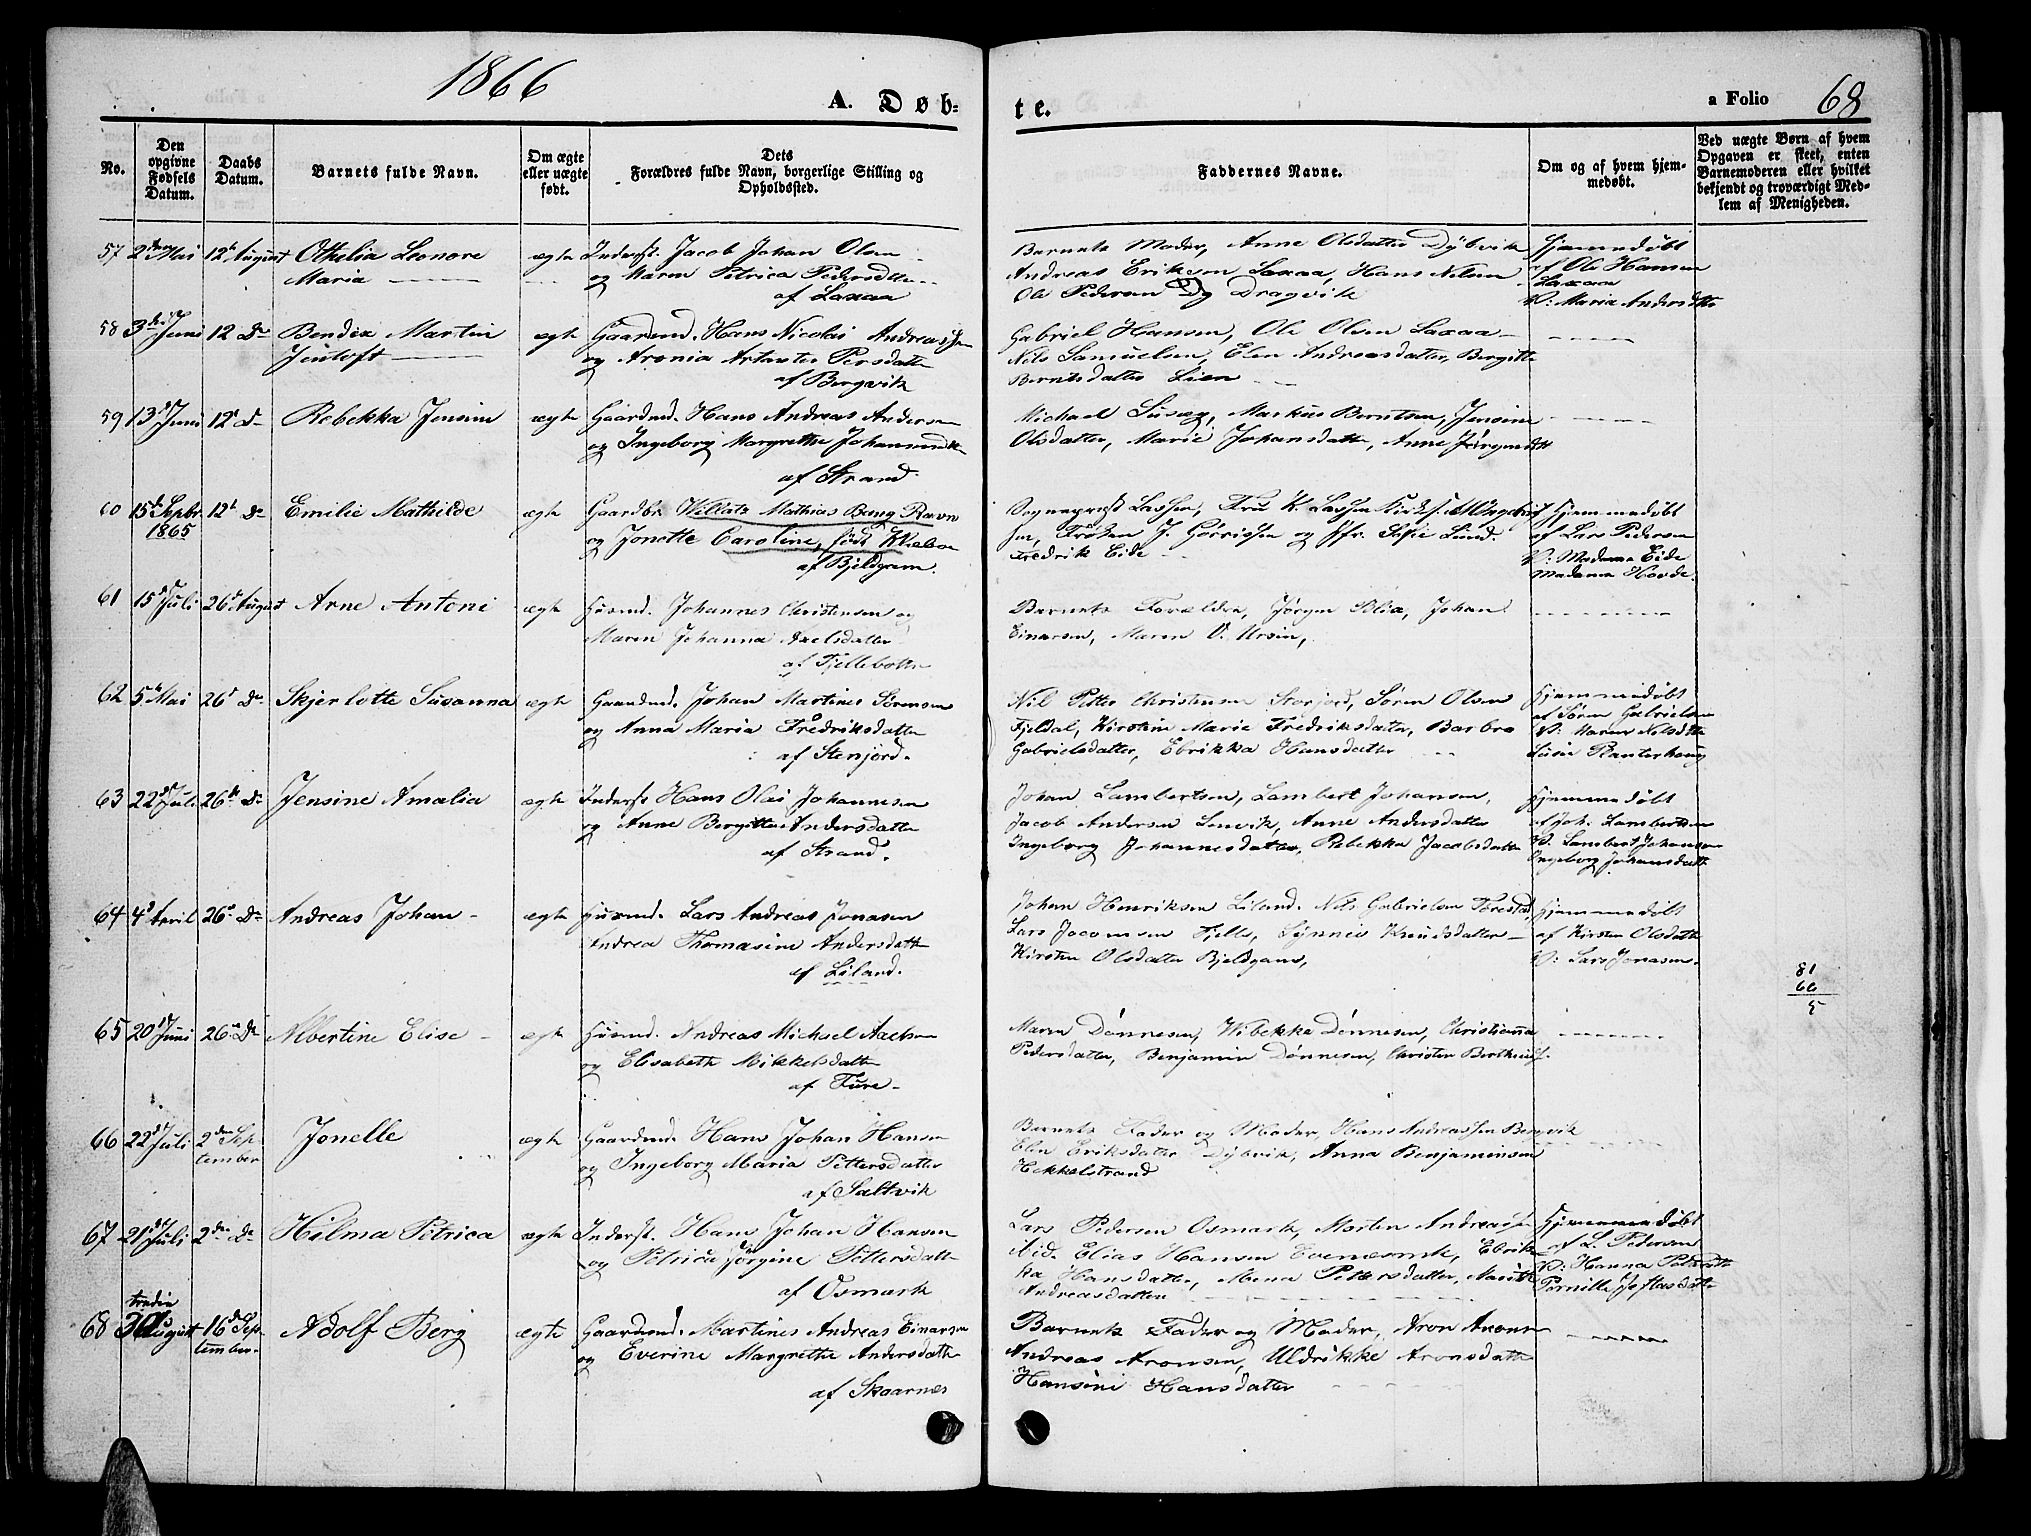 1866
A. Døb-
te.
a Folio 68
No.
Den opgivne Fødsels Datum.
Daabs Datum.
Barnets fulde Navn.
Om ægte eller uægte født.
Dets Forældres fulde Navn, borgerlige Stilling og Opholdssted.
Faddernes Navne.
Om og af hvem hjem-
medøbt.
Ved uægte Børn af hvem
Opgaven er skeet, enten
Barnemoderen eller hvilket
bekjendt og troværdigt Med-
lem af Menigheden.
57 2den Mai 12te August Othelia Leonore
Maria
ægte Inderst. Jacob Johan Olsen
og Maren Petrica Pedersdtr
af Laxaa
Barnets Moder, Anne Olsdatter Dybvik
Andreas Eriksen Laxaa, Hans Nilsen
Ole Pedersen Dragvik
Hjemmedøbt
af Ole Hansen
Laxaa
V: Maria Andersdtr
58 3die Juni 12 Do Bendix Martin
Jentoft
ægte Gaardmd. Hans Nicolai Andreassen
og Aronia Persdatter
af Bergvik
Gabriel Hansen, Ole Olsen Laxaa
Nils Samuelsen, Elen Andreasdatter, Bergitte
Berntsdatter Lien
59 13d Juni 12t Do Rebekka Jensine
ægte Gaardmd. Hans Andreas Andersen
og Ingeborg Margrethe Johannesdtr
af Strand
Michael Markus Berntsen, Jensine
Olsdatter, Marie Johansdatter, Anne Jörgensdtr
60 15d Septbr 12t Do Emilie Mathilde
1865
ægte Gaardbr. Willatz Mathias Bang Ravn
og Jonette Caroline, født
af Bjeldgrem.
Sogneprest Lassen, Fru K. Lassen
Frøken J. Görrissen og Jfr. Sofie Lund
Fredrik Eide
Hjemmedøbt
af Lars Pedersen
V: Madame Eide
Madame Hovde.
61 15d Juli 26d August Arne Antoni
ægte Husmd. Johannes Christensen og
Maren Johanna Axelsdatter
af Fjellebotn
Barnets Forældre, Jørgen Blix, Johan
Einarsen, Maren O. Ursin,
62 5te Mai 26d Do Skjerlotte Susanna
ægte Gaardmd. Johan Martines Sørensen
og Anna Maria Fredriksdatter
af Stenjord.
Nil Petter Christensen Storjord, Søren Olsen
Fjeldal, Kirstine Marie Fredriksdatter, Barbro
Gabrielsdatter, Ebrikka Hansdatter
Hjemmedøbt
af Søren Gabrielsen
V: Maren Nilsdtr
63 22d Juli 26de Do Jensine Amalia
ægte Inderst Hans Olai Johannesen
og Anne Bergitte Andersdatter
af Strand.
Johan Lambertsen, Lambert Johansen,
Jacob Andersen Lenvik, Anne Andersdatter
Ingeborg Johannesdatter, Rebekka Jacobsdatter
Hjemmedøbt
af Joh. Lambertsen
V. Lambert Johansen
Ingeborg Johansdatter
64 4d April 26d Do Andreas Johan
ægte Husmd. Lars Andreas Jonasen
Andrea Thomasine Andersdatter
af Liland.
Johan Henriksen Liland. Nils Gabrielsen
Lars Fjelle, Synnev Knudsdatter
Kirsten Olsdatter Bjeldgam,
Hjemmedøbt
af Kirsten Olsdatter
V: Lars Jonasen.
81
66
5
65 20d Juni 26de Do Albertine Elise
ægte Husmd. Andreas Michael Axelsen
og Elisabeth Mikkelsdatter
af Fure
Maren Dønnesen, Wibekke Dønnesen, Christianna
Pedersdatter, Benjamin Dønnesen, Christen
66 22d Juli 2den Sep-
tember Jonelle
ægte Gaardmd. Hans Johan Hansen
og Ingeborg Maria Pettersdatter
af Saltvik
Barnets Fader og Moder, Hans Andreassen Bergvik
Elen Eriksdatter Dybvik, Anna Benjaminsen
Hekkelstrand
67 21de Juli 2den Do Hilma Petrica
ægte Inderst. Hans Johan Hansen
og Petrica Jørgine Pettersdatter
af Osmark
Lars Pedersen Osmark, Morten Andreassen
ibid. Elias Hansen Evenesmk, Ebrik-
ka Hansdatter, Mena Pettersdatter, Marith
Andreasdatter
Hjemmedøbt
af L. Pedersen
V: Hanna Petersdtr
Pernille
tredie
68 30te August 16d Sep-
tember. Adolf Berg
ægte Gaardmd. Martines Andreas Einarsen
og Everine Margrethe Andersdatter
af Skaarnes
Barnets Fader og Moder, Aron Arons
Andreas Aronsen, Uldrikke Aronsdatter
Hansine Hansdatter